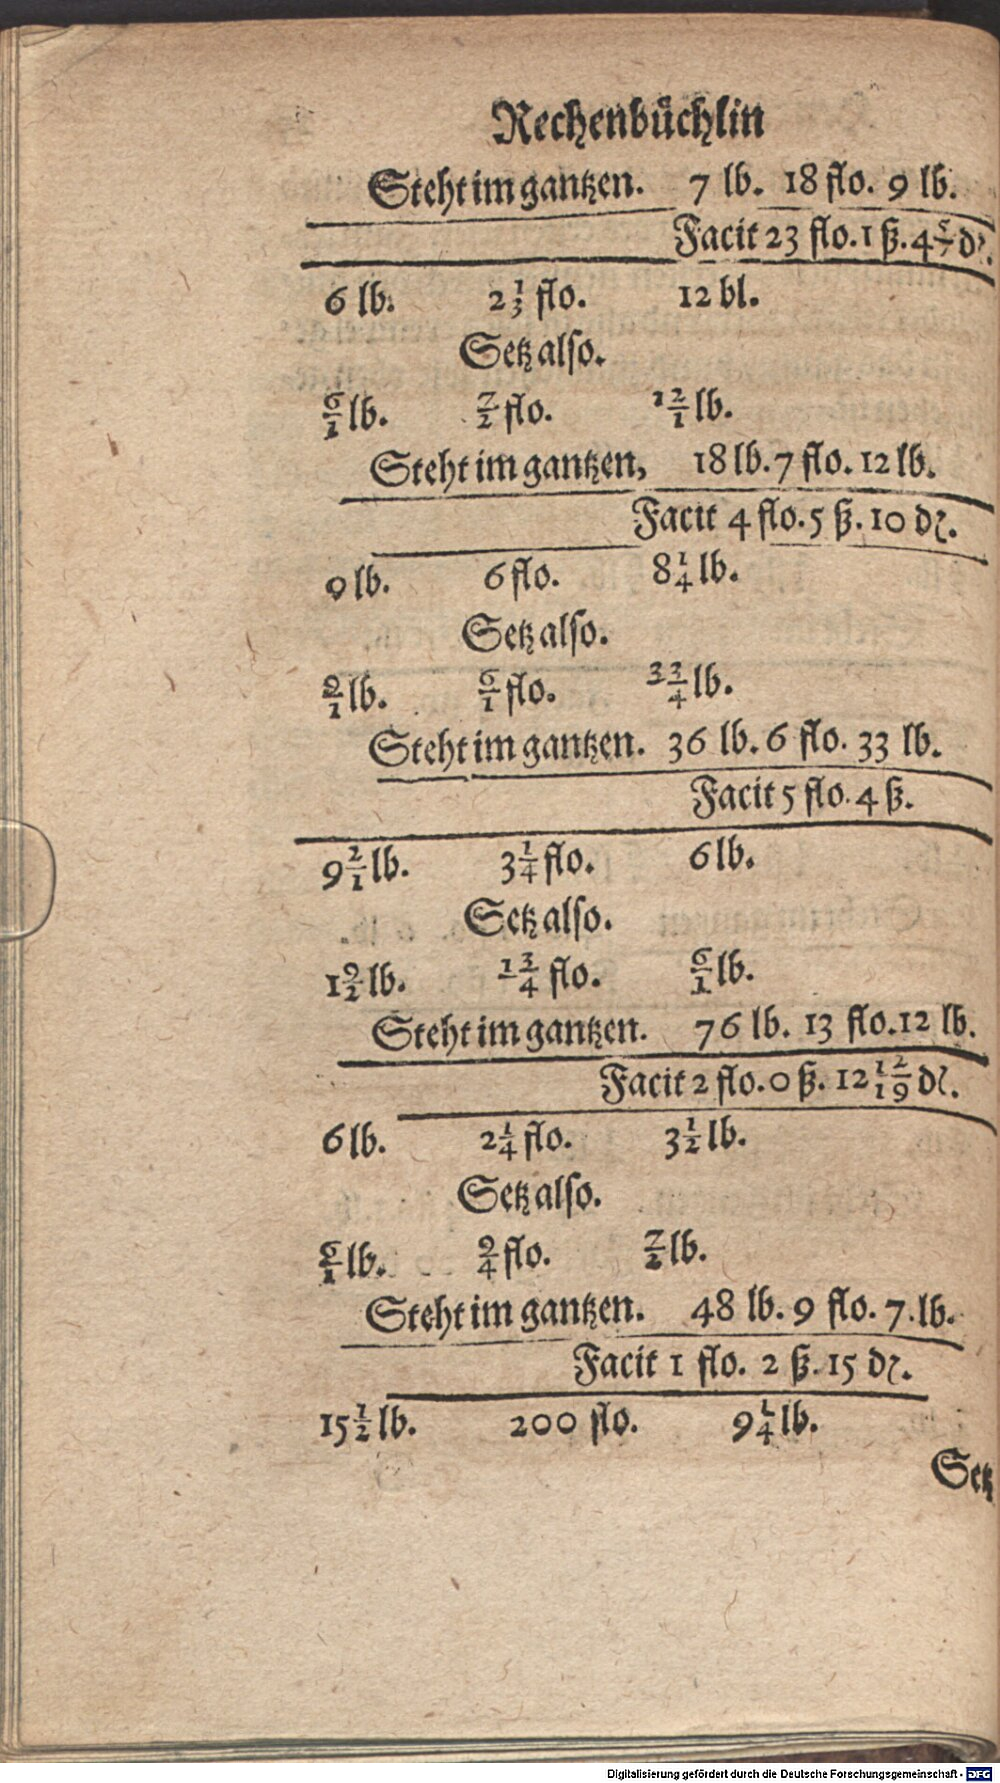 Rechenbüchlin
Steht im gantzen. 7 lb. 18 flo. 9 lb.
Facit 23 flo. 1 ß. 4 5/7 ₰.
6 lb. 2 1/3 flo. 12 bl.
Setz also.
6/1 lb. 7/2 flo. 12/1 lb.
Steht im gantzen, 18 lb. 7 flo. 12 lb.
Facit 4 flo. 5 ß. 10 ₰.
9 lb. 6 flo. 8 1/4 lb.
Setz also.
9/1 lb. 6/1 flo. 33/4 lb.
Steht im gantzen. 36 lb. 6 flo. 33 lb.
Facit 5 flo. 4 ß.
9 2/1 lb. 3 1/4 flo. 6 lb.
Setz also.
19/2 lb. 13/4 flo. 6/1 lb.
Steht im gantzen. 76 lb. 13 flo. 12 lb.
Facit 2 flo. 0 ß. 12 12/19 ₰.
6 lb. 2 1/4 flo. 3 1/2 lb.
Setz also.
6/1 lb. 9/4 flo. 7/2 lb.
Steht im gantzen. 48 lb. 9 flo. 7. lb.
Facit 1 flo. 2 ß. 15 ₰.
15 1/2 lb. 200 flo. 9 1/4 lb.
Setz
Digitalisierung gefördert durch die Deutsche Forschungsgemeinschaft - DFG